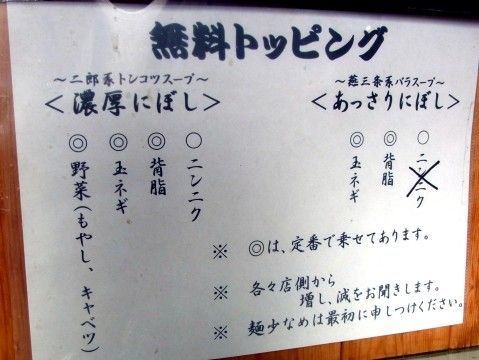 無料トッピング
～二郎系トンコツスープ～
＜濃厚にぼし＞
○ ニンニク
◎ 背脂
◎ 玉ネギ
◎ 野菜(もやし、キャベツ)
～燕三条系バラスープ～
＜あっさりにぼし＞
○ ニンニク
◎ 背脂
◎ 玉ネギ
※ ◎は、定番で乗せてあります。
※ 各々店側から
増し、減をお聞きします。
※ 麺少なめは最初に申しつけください。